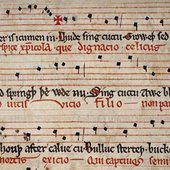 er is icumen in. Lhude sing cuccu. Groweþ sed
spice xpicola que dignacio celicus
d springþ þe wde nu. Sing cuccu Awe bl
o uitis vicio Filio non par
lhouþ after calue cu. Bulluc sterteþ. buck
mortis exicio Qui captiuos semi